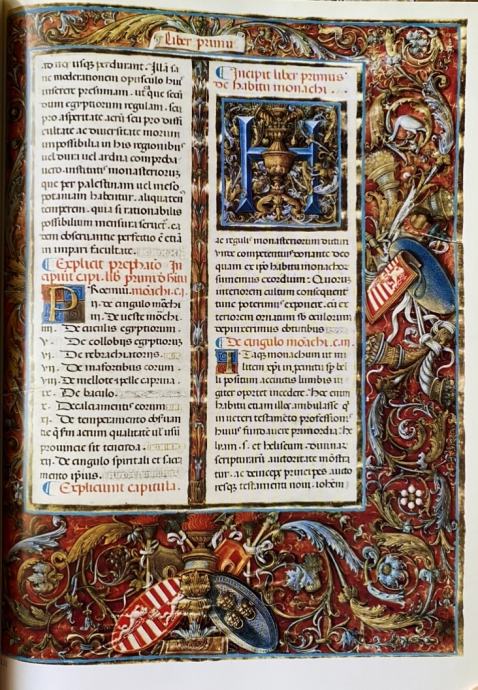 Liber primus
do usq; perdurant. Illa sa
ne moderationem opusculo huic
inserere presumam. ut que secū
dum egyptiorum regulam. seu
pro asperitate aerū seu pro diffi
cultate ac diuersitate morum
impossibilia in hiis regionibus
uel dura uel ardua comproba
uero. institutis monasteriorum
que per palestinam uel meso
potamiam habentur. aliquaten
temperem. quia si rationabilis
possibilium mensura seruetur. ea
dem obseruantie perfectio est etiā
in impari facultate.
Explicit prephatio. In
cipiunt capi. libri primi de habitu
Proemiū. monachi. c. i.
ii. De cingulo mōchi
iii. De ueste mōchi.
iiii. De cucullis egyptiorum.
v. De collobiis egyptiorum
vi. De rebrachiatoriis.
vii. De mafortibus eorum.
viii. De mellote i. pelle caprina.
ix. De baculo.
x. De calciamentis eorum
xi. De temperamento obseruan
tie secundum aerum qualitatē uel usū
prouincie sit tenenda.
xii. De cingulo spirituali et sacra
mento ipsius.
Expliciunt capitula.
Incipit liber primus
de habitu monachi.
H
ac regulis monasteriorum dicturi
unde competentius donante deo
quam ex ipso habitu monachorum
sumemus exordium: Quorum
interiorem cultum consequenter
tunc poterimus exponere. cum ex
teriorem ornatum sub oculorum
depinxerimus obtutibus
De cingulo monachi. c. ii.
Itaq; monachum ut mi
litem xpi in procinctu semper bel
li positum accinctis lumbis iu
giter oportet incedere. Hoc enim
habitu etiam illos ambulasse qui
in ueteri testamēto professionis
huius fundauere primordia. He
liam. s. et heliseum diuinarū
scripturarū autoritate mōstra
tur. ac deinceps principes aucto
resq; testamenti noui. iohēm